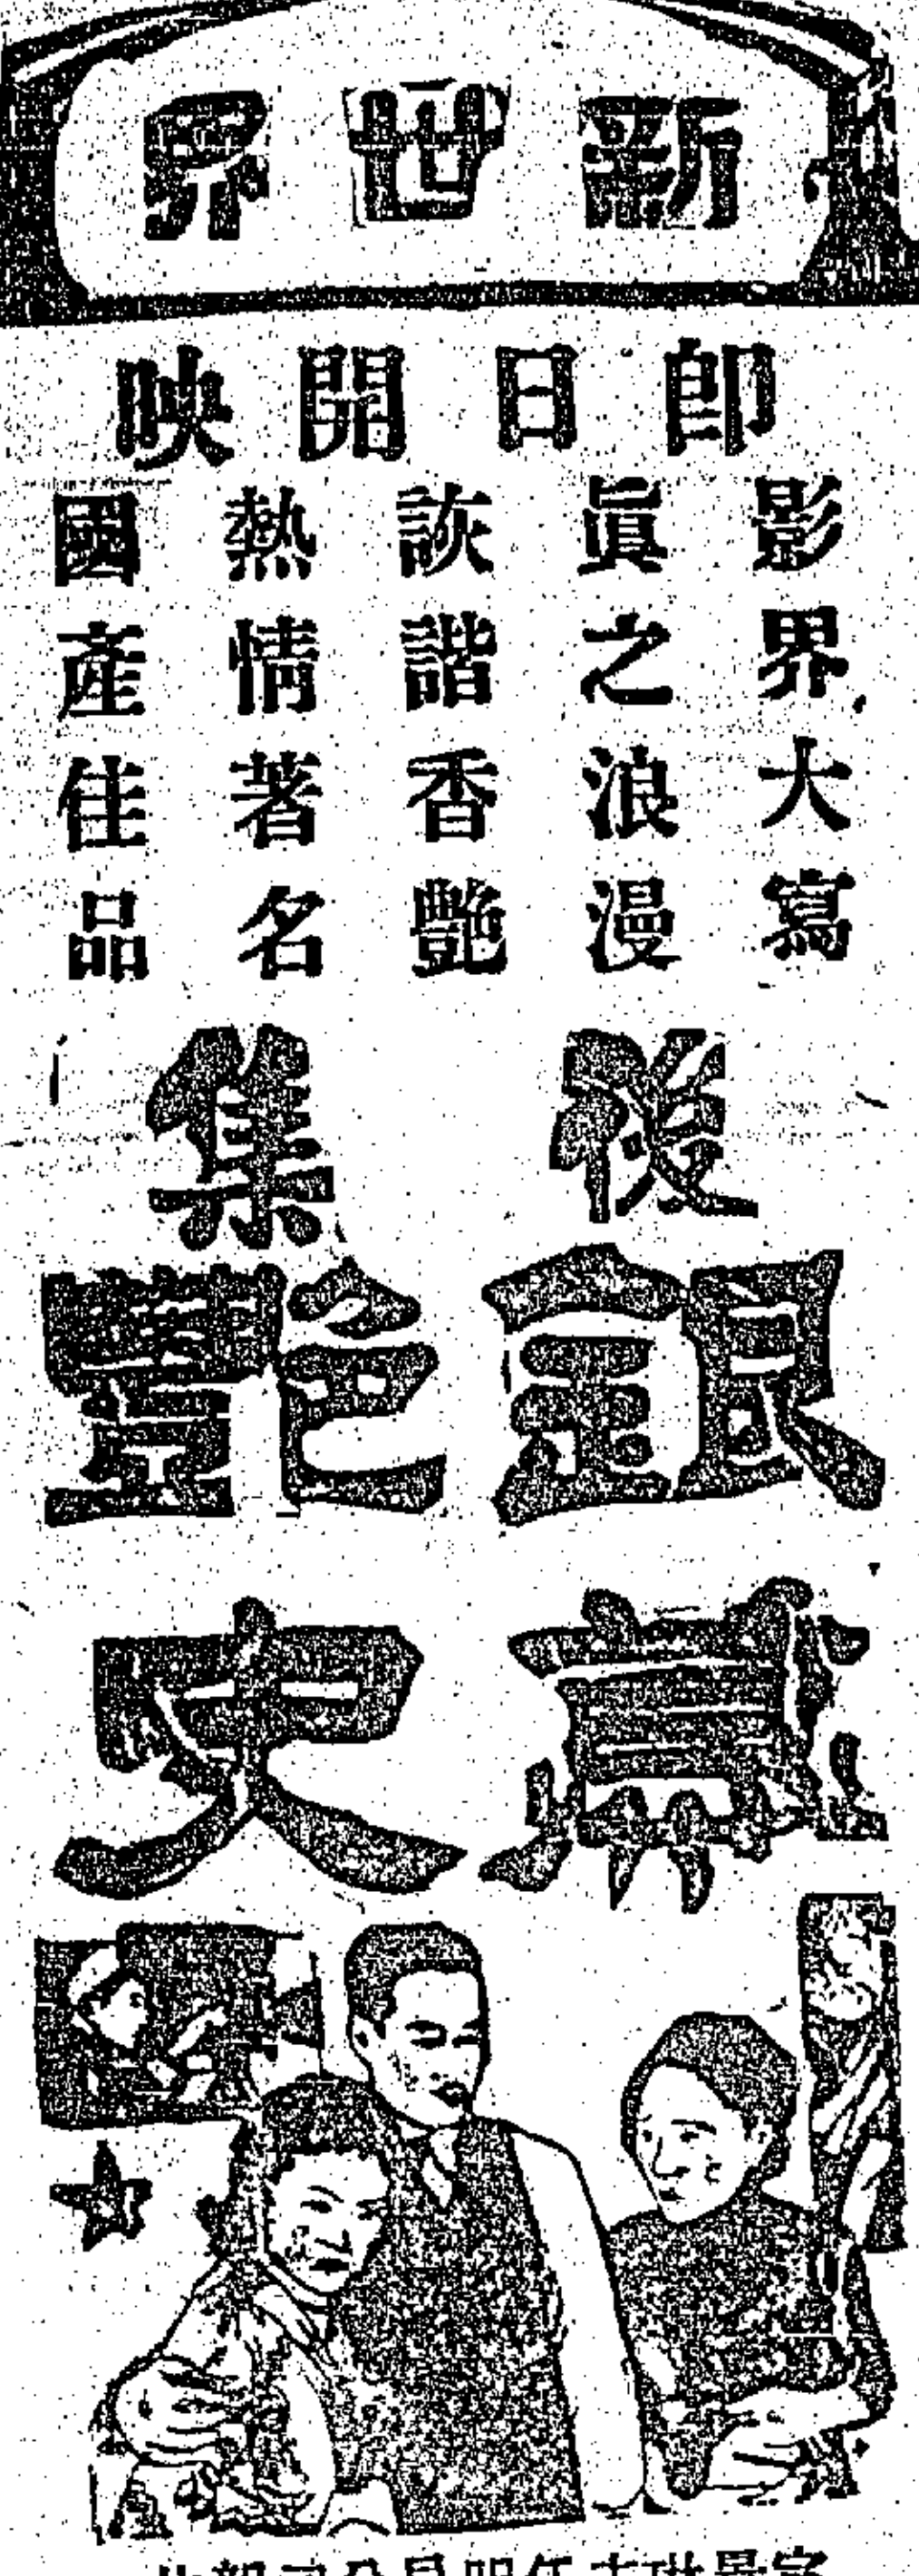 新世界
即日開映
影界大寫
眞之浪漫
詼諧香艷
熱情著名
國產佳品
後集
銀幕艷史